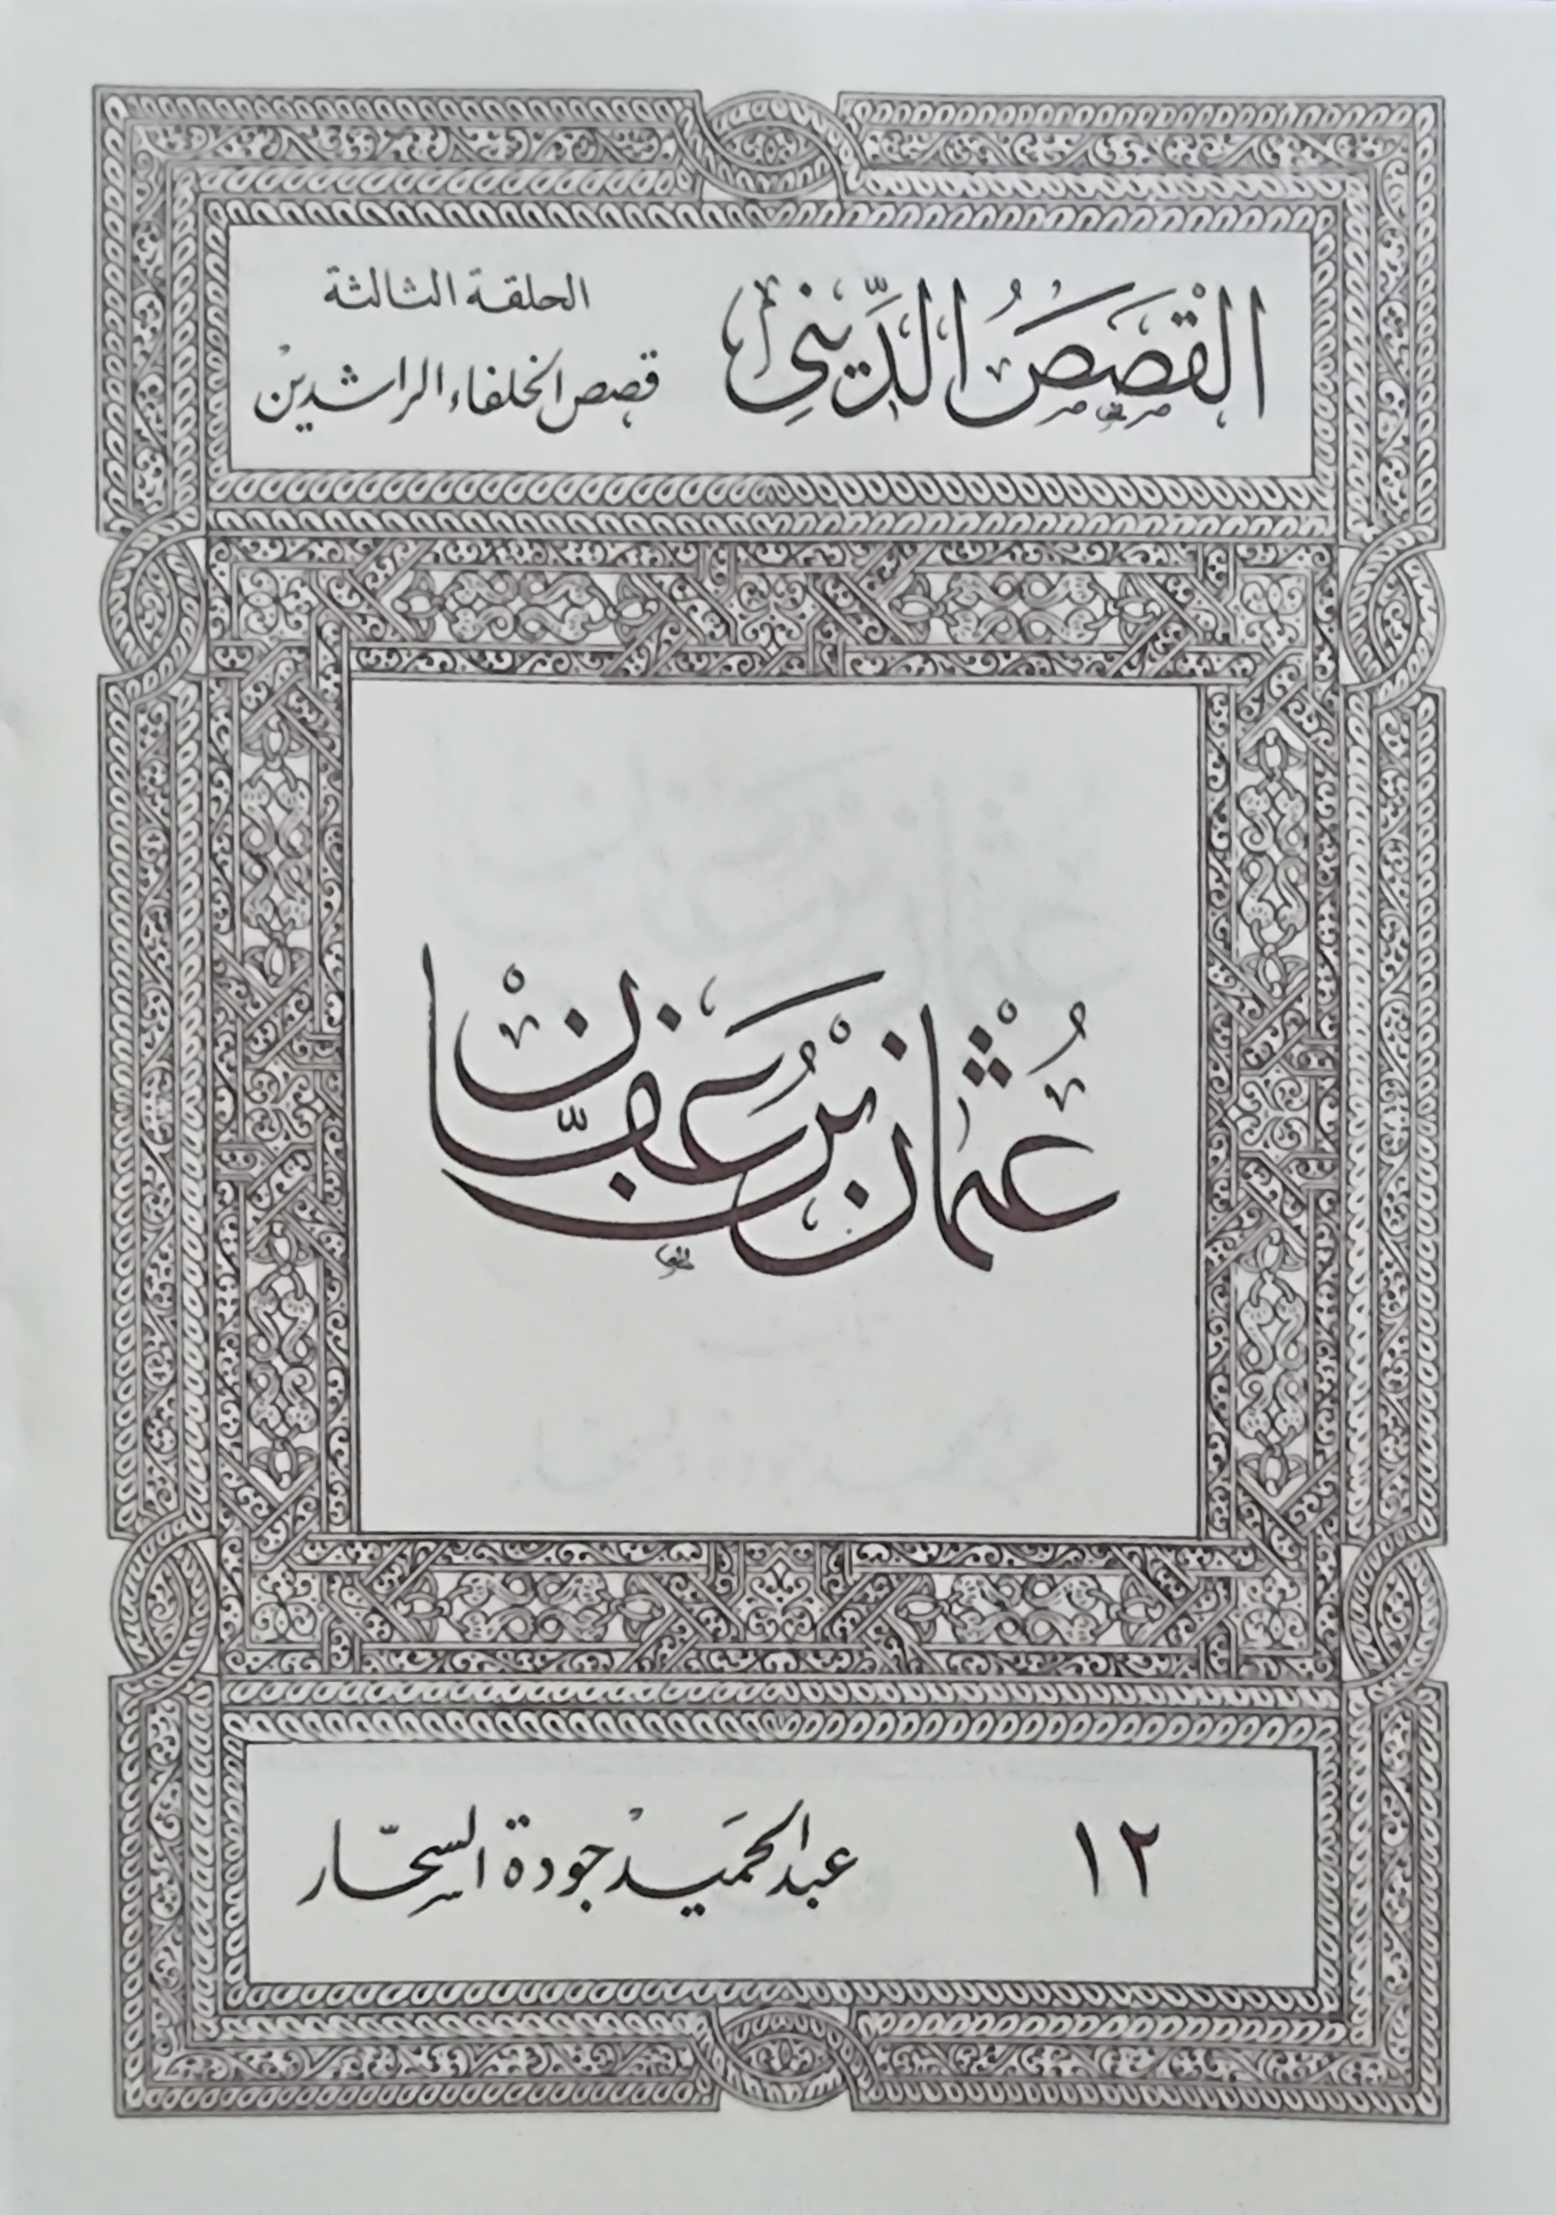 القَصَصُ الدِّينِي
الحلقة الثالثة
قصص الخلفاء الراشدين
عُثْمَان بْنُ عَفَّان
١٢
عبد الحميد جودة السحّار